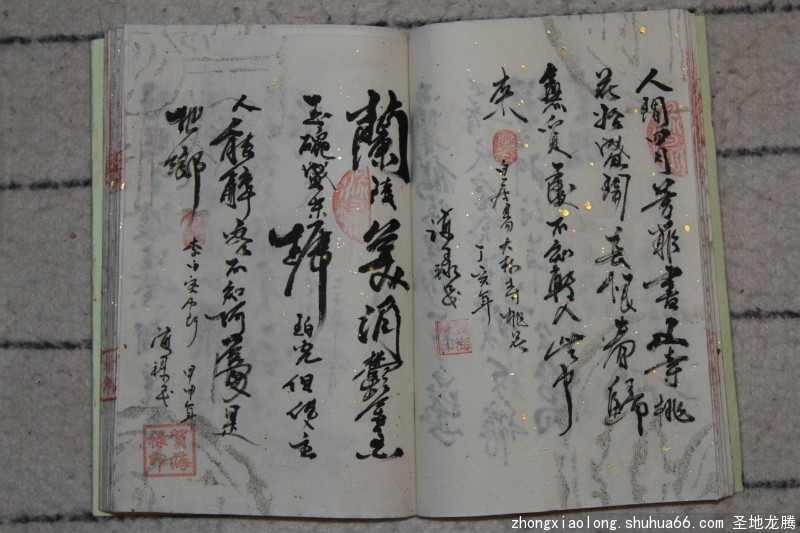 人間四月芳菲盡山寺桃
花始盛開長恨春歸
無覓處不知轉入此中
來
白居易大林寺桃花
丁亥年
蘭陵美酒鬱金香
玉碗盛來琥珀光但使主
人能醉客不知何處是
他鄉
李白客中行
甲申年
賀海祿印
zhongxiaolong.shuhua66.com @ 圣地龙腾